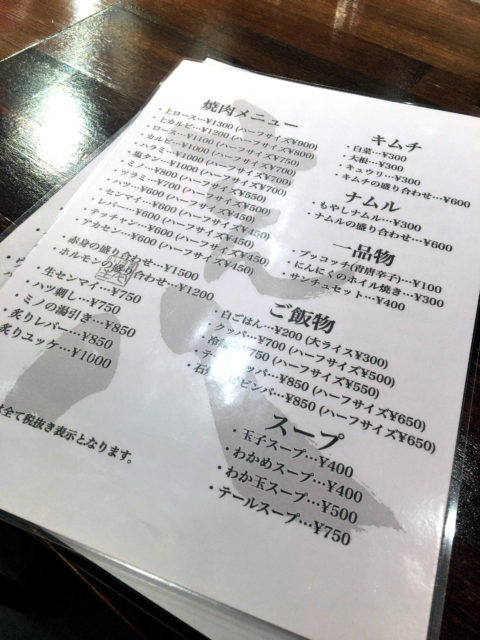 焼肉メニュー
・上ロース…¥1300 (ハーフサイズ¥900)
・上カルビ…¥1200 (ハーフサイズ¥800)
・ロース…¥1100 (ハーフサイズ¥750)
・カルビ…¥1000 (ハーフサイズ¥700)
・ハラミ…¥1000 (ハーフサイズ¥700)
・塩タン…¥1000 (ハーフサイズ¥700)
・ミノ…¥1000 (ハーフサイズ¥700)
・ツラミ…¥800 (ハーフサイズ¥550)
・ハツ…¥700 (ハーフサイズ¥500)
・センマイ…¥600 (ハーフサイズ¥450)
・レバー…¥600 (ハーフサイズ¥450)
・テッチャン…¥600 (ハーフサイズ¥450)
・アカセン…¥600 (ハーフサイズ¥450)
赤身の盛り合わせ…¥1500
ホルモンの盛り合わせ…¥1200
・生センマイ…¥750
・ハツ刺し…¥750
・ミノの湯引き…¥850
炙りレバー…¥850
炙りユッケ…¥1000
全て税抜き表示となります。
キムチ
・白菜…¥300
・大根…¥300
・キュウリ…¥300
・キムチの盛り合わせ…¥600
ナムル
・もやしナムル…¥300
・ナムルの盛り合わせ…¥600
一品物
・プッコッチ(青唐辛子)…¥100
・にんにくのホイル焼き…¥300
・サンチュセット…¥400
ご飯物
・白ごはん…¥200 (大ライス¥300)
・クッパ…¥700 (ハーフサイズ¥500)
・冷 ¥750 (ハーフサイズ¥550)
・テ ッパ…¥850 (ハーフサイズ¥650)
・石 ビビンバ…¥850 (ハーフサイズ¥650)
スープ
・玉子スープ…¥400
・わかめスープ…¥400
・わか玉スープ…¥500
・テールスープ…¥750